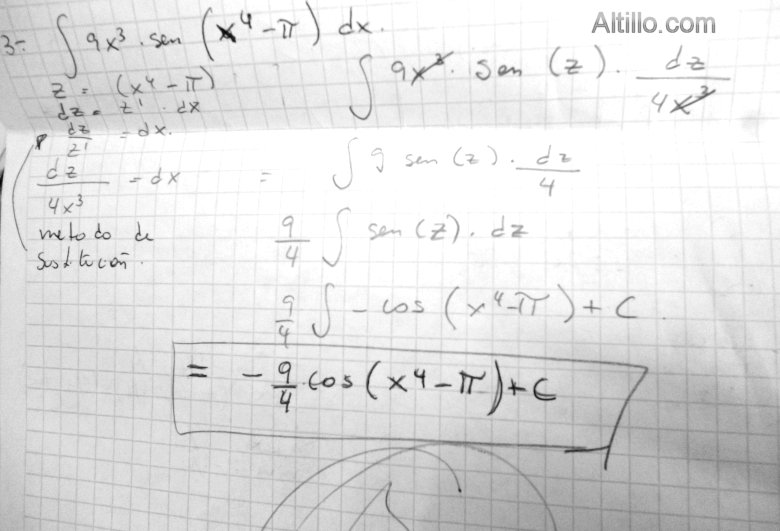 Altillo.com
3- ∫ 9x³ · sen (x⁴ - π) dx.
z = (x⁴ - π)
dz = z' · dx
dz/z' = dx.
dz/4x³ = dx
metodo de
Sustitución.
∫ 9x³ · sen (z) · dz/4x³
= ∫ 9 sen (z) · dz/4
9/4 ∫ sen (z) · dz
9/4 ∫ - cos (x⁴-π) + C.
= - 9/4 cos (x⁴ - π) + C